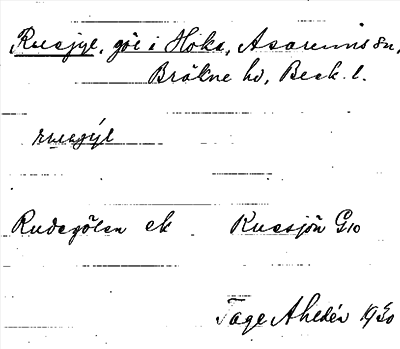 Rusjyl, göl i Hoka, Asarums sn,
Bräkne hd, Blek. l.
rusgýl
Rudegölen ek Russjön G10
Tage Ahldén 1930